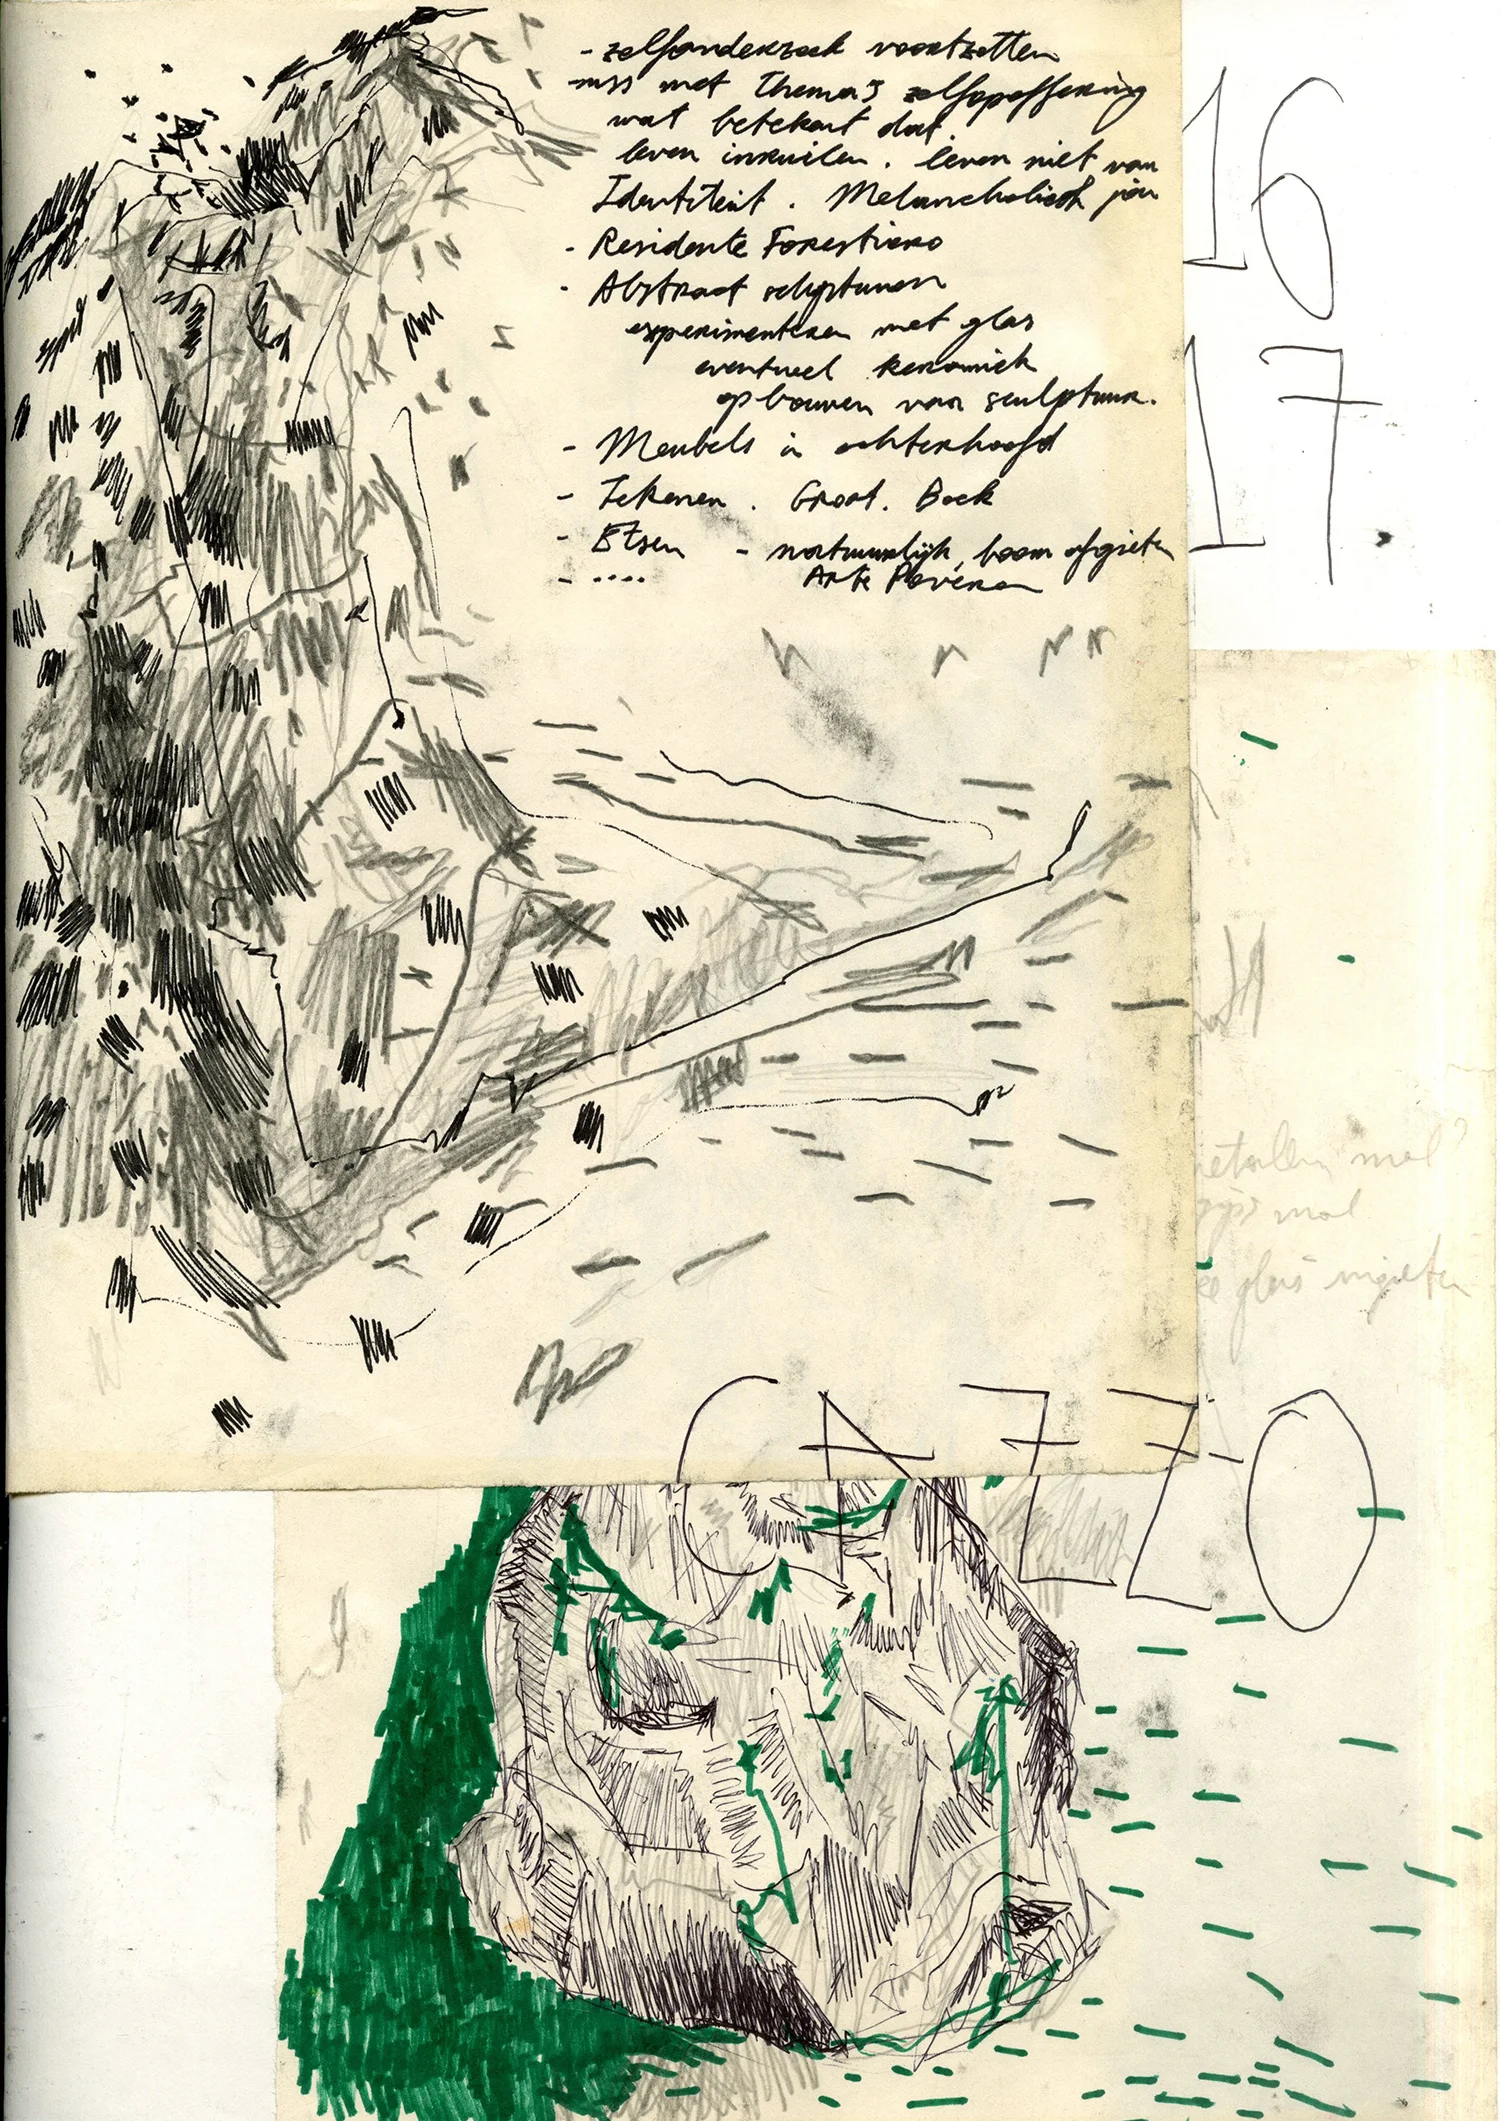 - zelfonderzoek voortzetten
met Thema's zelfopoffering
wat betekent dat.
leven inruilen. leven niet van
Identiteit. Melancholisch
- Residente Forestiero
- Abstract sculpturen
experimenteren met glas
eventueel keramiek
opbouwen van sculptuur.
- Meubels in achterhoofd
- Tekenen. Groot. Boek
- Etsen - natuurlijk, boom afgieten
- .... Arte Povera
16
17
mal?
mal
glas ingieten
CAZZO